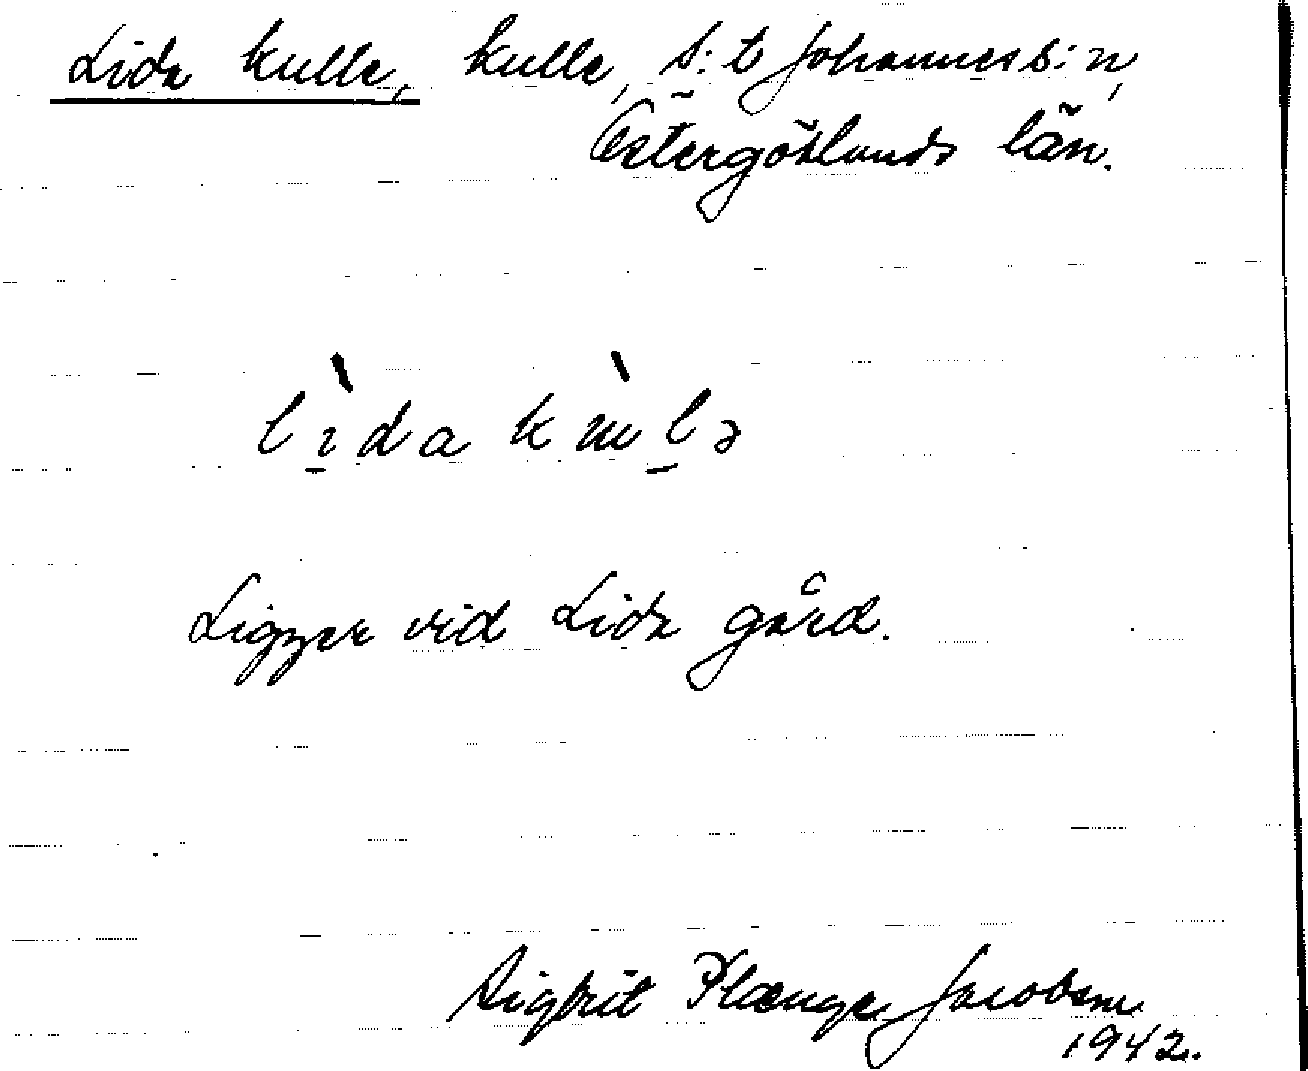 Lida kulle, kulle, S:t Johannes s:n,
Östergötlands län.
lìda kùlə
Ligger vid Lida gård.
Sigfrit Plænge Jacobson
1942.